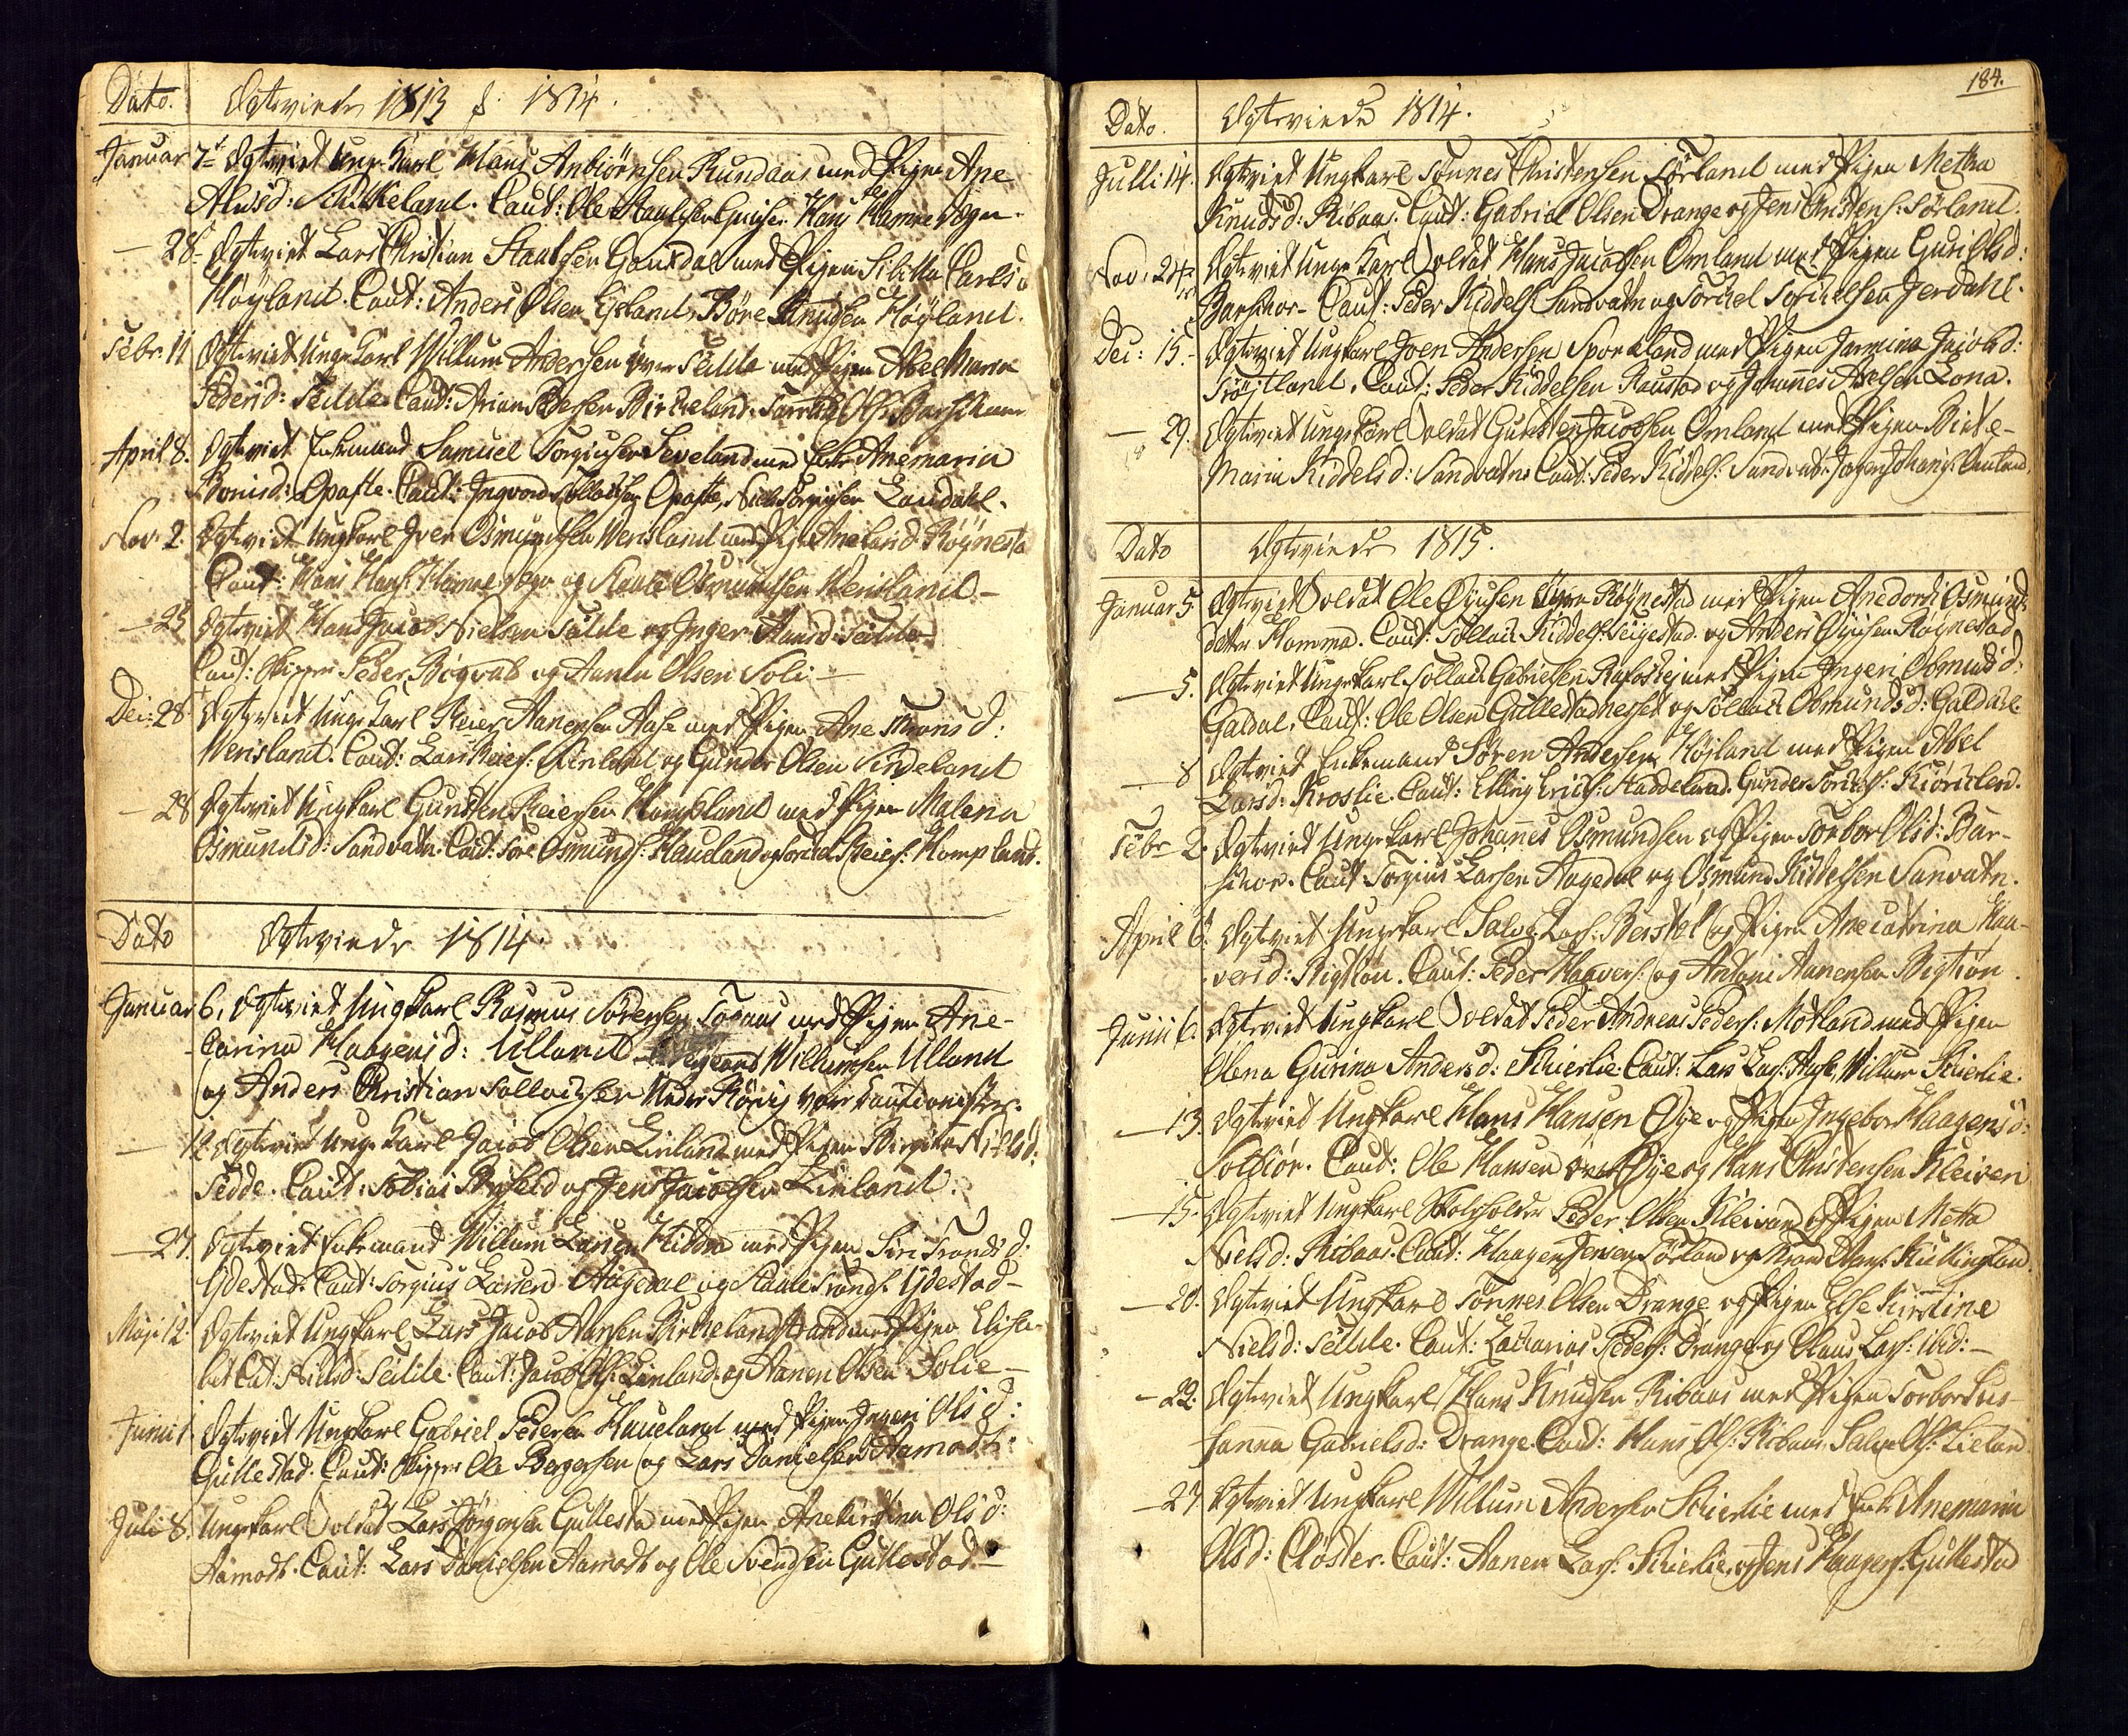 Dato. Egteviede 1813 & 1814.
Januar 7de Egteviet Unge Karl Hans Anbiörnsen Rundaas med Pigen Ane
Alvisd: Caut: Ole Staalesen Hans Hamre
— 28de Egteviet Lars Christian Staalesen Gausdal med Pigen Silitha Carlsd
Höyland. Caut: Anders Olsen Egeland, Böre Knudsen Höyland.
Febr: 11 Egteviet Unge Karl Willum Andersen over Fedde med Pigen Abel Maria
Pedersd: Fedde. Caut: Arian Pedersen Birkeland, Ols:
April 8. Egteviet Enkemand Samuel Torgiusen Leveland med Enke Anemaria
Bonisd: Opofte. Caut: Ingvord Tollaksen Opofte, Niels Torgiusen Landahl.
Nov: 2. Egteviet Ungkarl Iver Osmundsen Versland med Pige Ane Röynesta
Caut: Hans Hans: Hamre og Staale Osmundsen Versland —
— 25 Egteviet Hans Jacob Nielsen Fedde og Inger Hansd: Fedde
Caut: Skipper Peder Bögvald og Aanen Olsen Soli —
Dec: 28 Egteviet Unge Karl Reier Aanensen Aase med Pigen Ane Tronsd:
Versland. Caut: Lars Reiers: og Gunder Olsen Sindeland
— 28 Egteviet Ungkarl Gunsten Reiersen Kompland med Pigen Malena
Osmundsd: Sandvatn. Caut: Tore Osmunds: Haueland og Torkel Reiers: Kompland.
Dato Egteviede 1814.
Januar 6. Egteviet Ungkarl Rasmus Sörensen Töraas med Pigen Ane-
Carina Haagensd: Ulland. Wilhemsen Ulland
og Anders Christian Tollaksen Nedre Röiis vare Cautionister.
— 12 Egteviet Unge Karl Jacob Olsen Linland med Pigen Birgitte Nielsd:
Fedde. Caut: Tobias og Jens Jacobsen Linland.
— 27. Egteviet Enkemand Willum Larsen Hidra med Pigen Siri Trondsd:
Ydestad. Caut: Torgius Larsen Aagedal og Staale Tronds: Ydestad —
Maji 12. Egteviet Ungkarl Lars Jacob Hansen Birkelandstrand med Pigen Elisa-
bet Cat: Nielsd: Fedde. Caut: Jacob Ols: Linland og Aanen Olsen Solie —
Junii 1. Egteviet Ungkarl Gabriel Pedersen Haueland med Pigen Ingeri Olsd:
Gullestad. Caut: Skipper Ole Bergersen og Lars Danielsen Aamodt.
Juli 8. Ungkarl Soldat Lars Jörgensen Gullesta med Pigen Anekirstina Olsd:
Aamodt. Caut: Lars Danielsen Aamodt og Ole Svendsen Gullestad —
184.
Dato. Egteviede 1814.
Julli 14. Egteviet Ungkarl Tönnes Christensen Törland med Pigen Metha
Knudsd: Ribaas. Caut: Gabriel Olsen Drange og Jens Christens: Törland.
Nov: 24de Egteviet Unge Karl Soldat Hans Jacobsen Omland med Pigen Guri Olsd:
Barhvor — Caut: Peder Kiddels: Sandvatn og Torkel Torkelsen Jerdahl.
Dec: 15. Egteviet Ungkarl Joen Andersen Sporkland med Pigen Jarmina Jacobsd:
Tröystland. Caut: Peder Kiddelsen Raustad og Johannes Axelsen Lona.
— 29. Egteviet Ungkarl Soldat Gundsten Jacobsen Omland med Pigen Birte-
Maria Kiddelsd: Sandvatn. Caut: Peder Kiddels: Sandvat,
Dato Egteviede 1815.
Januar 5. Egteviet Soldat Ole Öyusen Röynestad med Pigen Anedorte Osmunds
datter Homma. Caut: Tollak Kiddels: Seigestad og Anders Öyusen Röynestad
— 5. Egteviet Ungkarl Tollak Gabrielsen Rafoshei med Pigen Ingeri Osmundsd:
Galdal. Caut: Ole Olsen Gullestadnesset og Tollak Osmundsd: Galdahl.
— 8 Egteviet Enkemand Sören Andersen Höyland med Pigen Abel
Larsd: Kroslie. Caut: Elling Erichs: Haddeland. Gunder Torkels: Kiörkleve.
Febr 2. Egteviet Ungkarl Johannes Osmundsen og Pigen Torbor Olsd: Bar-
hvor. Caut: Torgius Larsen Aagedal og Osmund Kiddelsen Sanvatn.
April 6. Egteviet Ungkarl Salve Lars: Berstöl og Pigen Anecatrina Haa-
versd: Rigtiön. Caut: Peder Haavers: og Antoni Aanensen Rigtiön.
Junii 6. Egteviet Ungkarl Soldat Peder Andreas Peders: Motland med Pigen
Olena Gurina Andersd: Schierlie. Caut: Lars Lars: Aase, Willum Schierlie.
— 13. Egteviet Ungkarl Hans Hansen Öye og Pigen Ingebor Haagensd:
Solbiör. Caut: Ole Hansen over Öye og Hans Christensen Kleiven
— 15. Egteviet Ungkarl Skoleholder Peder Olsen Kleivan og Pigen Metta
Nielsd: Ribaas. Caut: Haagen Jensen Törland og Hans: Kullingland.
— 20. Egteviet Ungkarl Tönnes Olsen Drange og Pigen Else Kirstine
Nielsd: Fedde. Caut: Zacharias Peders: Drange og Claus Lars: ibid: —
— 22. Egteviet Ungkarl Hans Knudsen Ribaas med Pigen Torbor Sus-
hanna Gabrielsd: Drange. Caut: Hans Ols: Ribaas. Salve Ols: Lieland
— 27 Egteviet Ungkarl Willum Andersen Schierlie med Enke Anemaria
Olsd: Closter. Caut: Aanen Lars: Schierlie og Jens Haagens: Gullesta